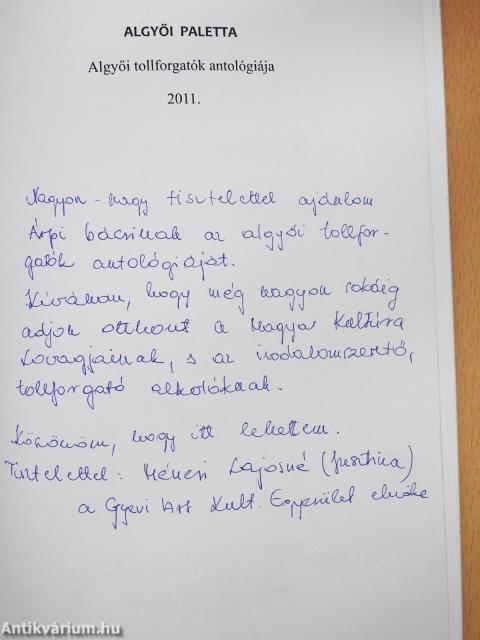 ALGYŐI PALETTA
Algyői tollforgatók antológiája
2011.
Nagyon-nagy tisztelettel ajánlom
Árpi bácsinak az algyői tollfor-
gatók antológiáját.
Kívánom, hogy még nagyon sokáig
adjon otthont a Magyar Kultúra
Lovagjainak, s az irodalomszerető,
tollforgató alkotóknak.
Köszönöm, hogy itt lehettem.
Tisztelettel: Ménesi Lajosné (Jusztina)
a Gyevi Art Kult. Egyesület elnöke
Antikvárium.hu